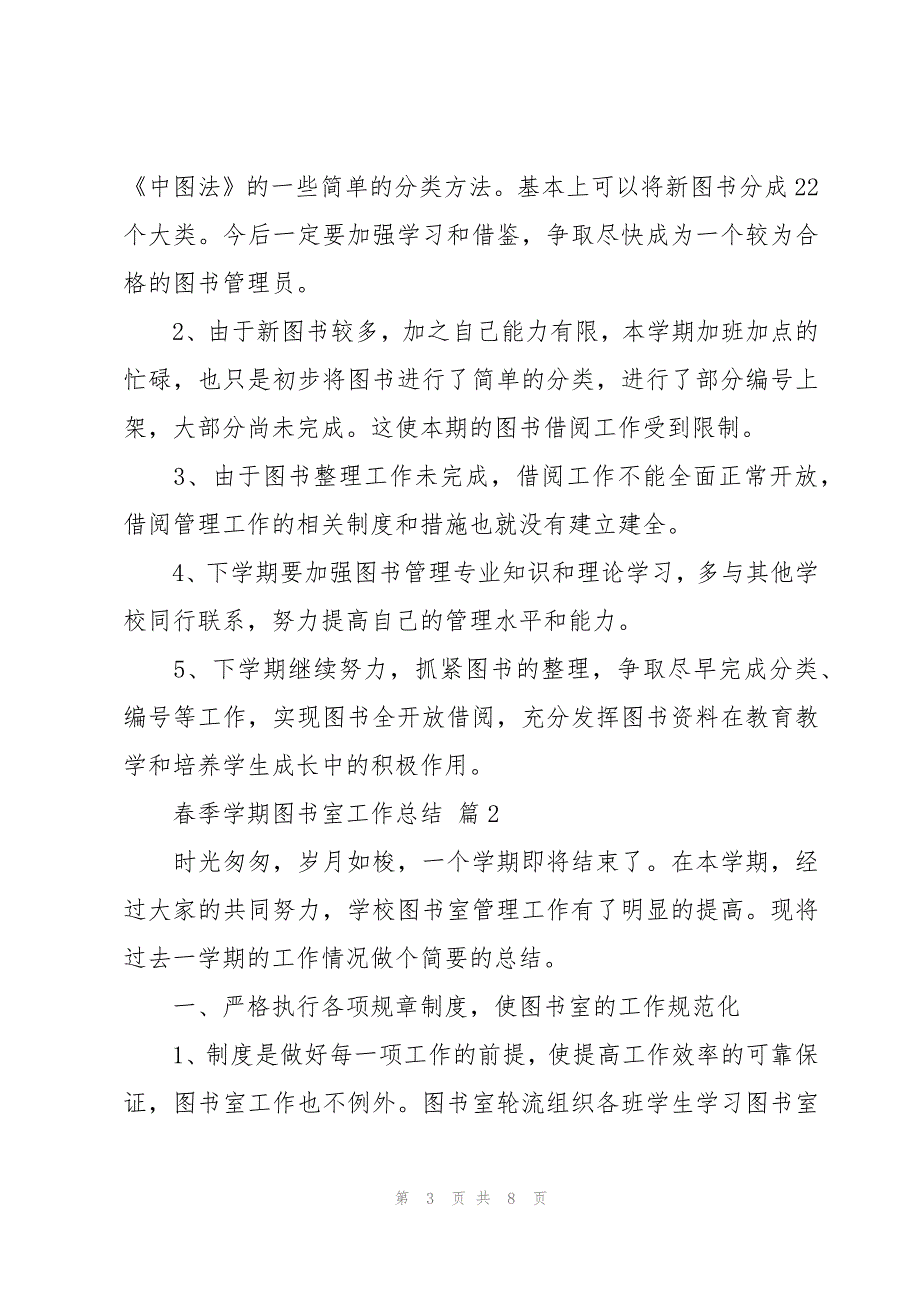 《中图法》的一些简单的分类方法。基本上可以将新图书分成 22
个大类。今后一定要加强学习和借鉴，争取尽快成为一个较为合
格的图书管理员。
2、由于新图书较多，加之自己能力有限，本学期加班加点的
忙碌，也只是初步将图书进行了简单的分类，进行了部分编号上
架，大部分尚未完成。这使本期的图书借阅工作受到限制。
3、由于图书整理工作未完成，借阅工作不能全面正常开放，
借阅管理工作的相关制度和措施也就没有建立建全。
4、下学期要加强图书管理专业知识和理论学习，多与其他学
校同行联系，努力提高自己的管理水平和能力。
5、下学期继续努力，抓紧图书的整理，争取尽早完成分类、
编号等工作，实现图书全开放借阅，充分发挥图书资料在教育教
学和培养学生成长中的积极作用。
春季学期图书室工作总结 篇2
时光匆匆，岁月如梭，一个学期即将结束了。在本学期，经
过大家的共同努力，学校图书室管理工作有了明显的提高。现将
过去一学期的工作情况做个简要的总结。
一、严格执行各项规章制度，使图书室的工作规范化
1、制度是做好每一项工作的前提，使提高工作效率的可靠保
证，图书室工作也不例外。图书室轮流组织各班学生学习图书室
第 3 页 共 8 页